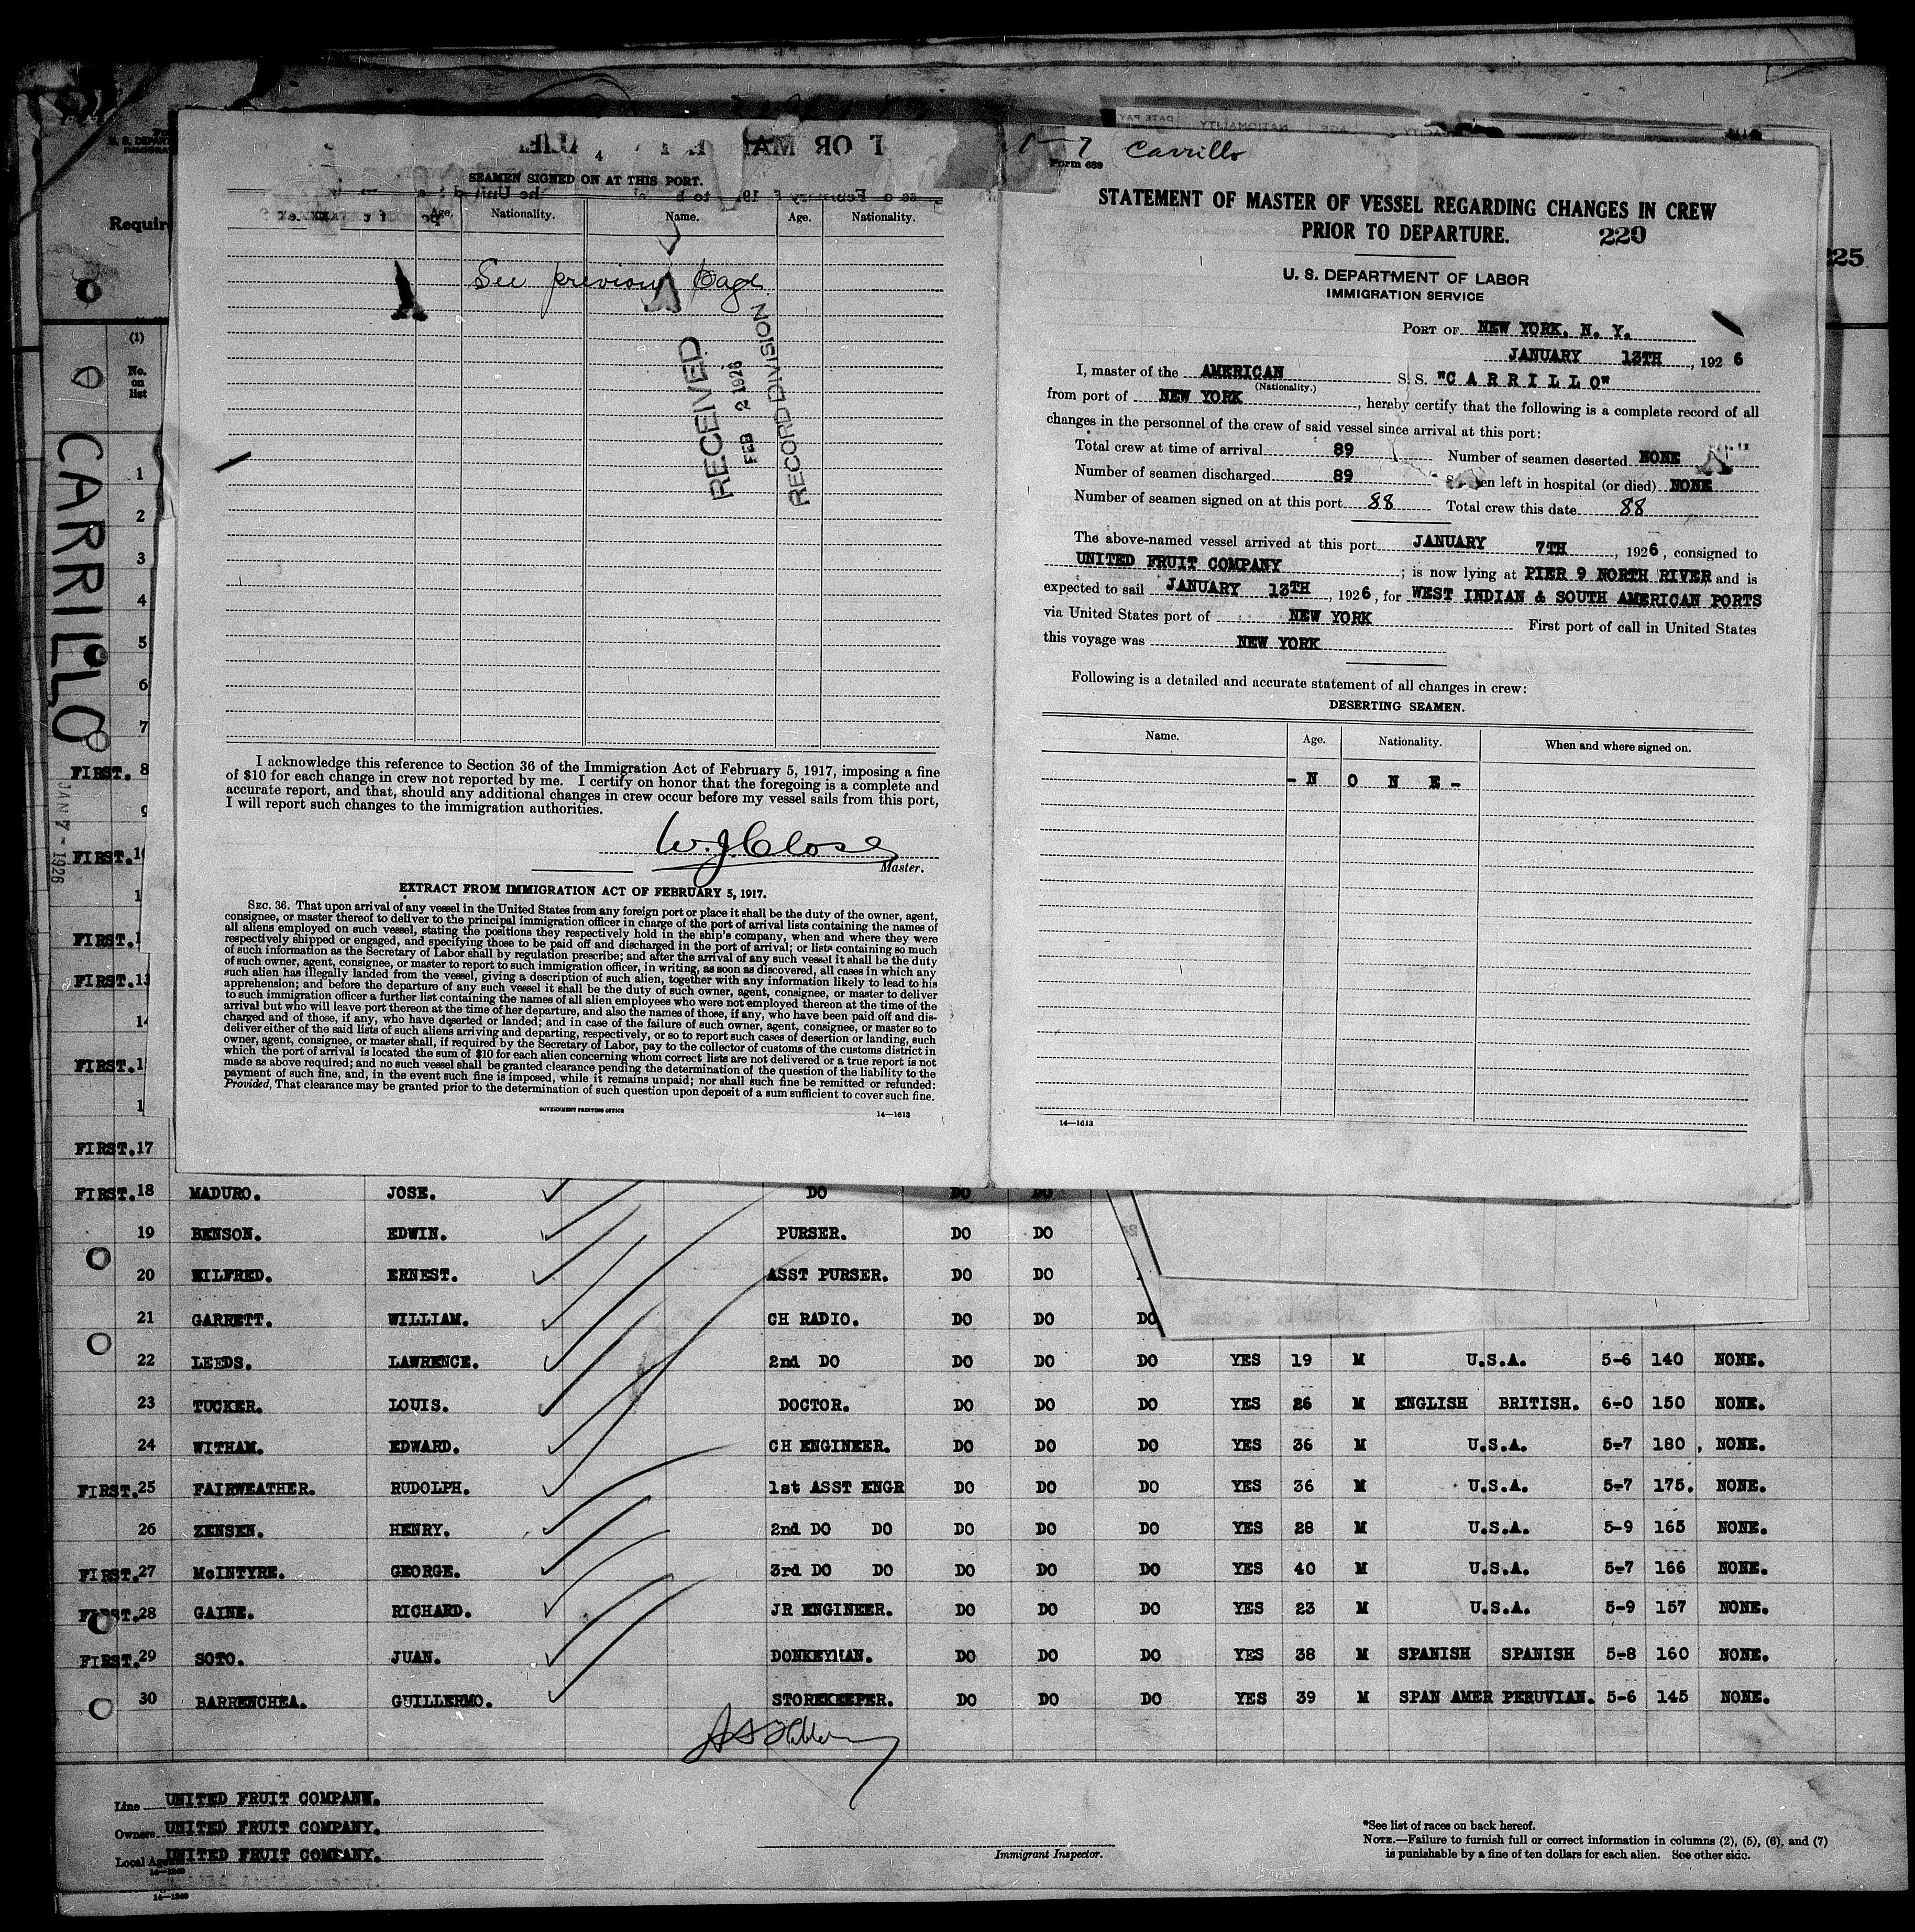 4
SEAMEN SIGNED ON AT THIS PORT.
Age. Nationality. Name. Age. Nationality.
See previous page
RECEIVED
FEB 2 1926
RECORD DIVISION
I acknowledge this reference to Section 36 of the Immigration Act of February 5, 1917, imposing a fine
of $10 for each change in crew not reported by me. I certify on honor that the foregoing is a complete and
accurate report, and that, should any additional changes in crew occur before my vessel sails from this port,
I will report such changes to the immigration authorities.
W. J. Close
Master.
EXTRACT FROM IMMIGRATION ACT OF FEBRUARY 5, 1917.
SEC. 36. That upon arrival of any vessel in the United States from any foreign port or place it shall be the duty of the owner, agent,
consignee, or master thereof to deliver to the principal immigration officer in charge of the port of arrival lists containing the names of
all aliens employed on such vessel, stating the positions they respectively hold in the ship's company, when and where they were
respectively shipped or engaged, and specifying those to be paid off and discharged in the port of arrival; or lists containing so much
of such information as the Secretary of Labor shall by regulation prescribe; and after the arrival of any such vessel it shall be the duty
of such owner, agent, consignee, or master to report to such immigration officer, in writing, as soon as discovered, all cases in which any
such alien has illegally landed from the vessel, giving a description of such alien, together with any information likely to lead to his
apprehension; and before the departure of any such vessel it shall be the duty of such owner, agent, consignee, or master to deliver
to such immigration officer a further list containing the names of all alien employees who were not employed thereon at the time of the
arrival but who will leave port thereon at the time of her departure, and also the names of those, if any, who have been paid off and dis-
charged and of those, if any, who have deserted or landed; and in case of the failure of such owner, agent, consignee, or master so to
deliver either of the said lists of such aliens arriving and departing, respectively, or so to report such cases of desertion or landing, such
owner, agent, consignee, or master shall, if required by the Secretary of Labor, pay to the collector of customs of the customs district in
which the port of arrival is located the sum of $10 for each alien concerning whom correct lists are not delivered or a true report is not
made as above required; and no such vessel shall be granted clearance pending the determination of the question of the liability to the
payment of such fine, and, in the event such fine is imposed, while it remains unpaid; nor shall such fine be remitted or refunded:
Provided, That clearance may be granted prior to the determination of such question upon deposit of a sum sufficient to cover such fine.
GOVERNMENT PRINTING OFFICE 14—1613
1—7 Carrillo
Form 689
STATEMENT OF MASTER OF VESSEL REGARDING CHANGES IN CREW
PRIOR TO DEPARTURE. 220
U. S. DEPARTMENT OF LABOR
IMMIGRATION SERVICE
PORT OF NEW YORK, N. Y.
JANUARY 13TH, 1926
I, master of the AMERICAN S. S. "CARRILLO"
(Nationality.)
from port of NEW YORK, hereby certify that the following is a complete record of all
changes in the personnel of the crew of said vessel since arrival at this port:
Total crew at time of arrival 89 Number of seamen deserted NONE
Number of seamen discharged 89 Seamen left in hospital (or died) NONE
Number of seamen signed on at this port 88 Total crew this date 88
The above-named vessel arrived at this port JANUARY 7TH, 1926, consigned to
UNITED FRUIT COMPANY; is now lying at PIER 9 NORTH RIVER and is
expected to sail JANUARY 13TH, 1926, for WEST INDIAN & SOUTH AMERICAN PORTS
via United States port of NEW YORK First port of call in United States
this voyage was NEW YORK
Following is a detailed and accurate statement of all changes in crew:
DESERTING SEAMEN.
Name. Age. Nationality. When and where signed on.
- N O N E -
14—1613
225
Requir
(1)
No. on list
CARRILLO
JAN 7 - 1926
1
2
3
4
5
6
7
FIRST. 8
9
FIRST. 10
1
FIRST. 1
FIRST. 13
14
FIRST. 1
1
FIRST. 17
FIRST. 18 MADURO. JOSE. DO DO DO
19 BENSON. EDWIN. PURSER. DO DO
20 WILFRED. ERNEST. ASST PURSER. DO DO
21 GARRETT. WILLIAM. CH RADIO. DO DO DO
22 LEEDS. LAWRENCE. 2nd DO DO DO DO YES 19 M U.S.A. 5-6 140 NONE.
23 TUCKER. LOUIS. DOCTOR. DO DO DO YES 26 M ENGLISH BRITISH. 6-0 150 NONE.
24 WITHAM. EDWARD. CH ENGINEER. DO DO DO YES 36 M U.S.A. 5-7 180, NONE.
FIRST. 25 FAIRWEATHER. RUDOLPH. 1st ASST ENGR DO DO DO YES 36 M U.S.A. 5-7 175. NONE.
26 ZENSEN. HENRY. 2nd DO DO DO DO DO YES 28 M U.S.A. 5-9 165 NONE.
FIRST. 27 McINTYRE. GEORGE. 3rd DO DO DO DO DO YES 40 M U.S.A. 5-7 166 NONE.
FIRST. 28 GAINE. RICHARD. JR ENGINEER. DO DO DO YES 23 M U.S.A. 5-9 157 NONE.
FIRST. 29 SOTO. JUAN. DONKEYMAN. DO DO DO YES 38 M SPANISH SPANISH 5-8 160 NONE.
30 BARRENCHEA. GUILLERMO. STOREKEEPER. DO DO DO YES 39 M SPAN AMER PERUVIAN. 5-6 145 NONE.
Line UNITED FRUIT COMPANY.
Owners UNITED FRUIT COMPANY.
Local Agents UNITED FRUIT COMPANY.
14—1240
Immigrant Inspector.
*See list of races on back hereof.
NOTE.—Failure to furnish full or correct information in columns (2), (5), (6), and (7)
is punishable by a fine of ten dollars for each alien. See other side.